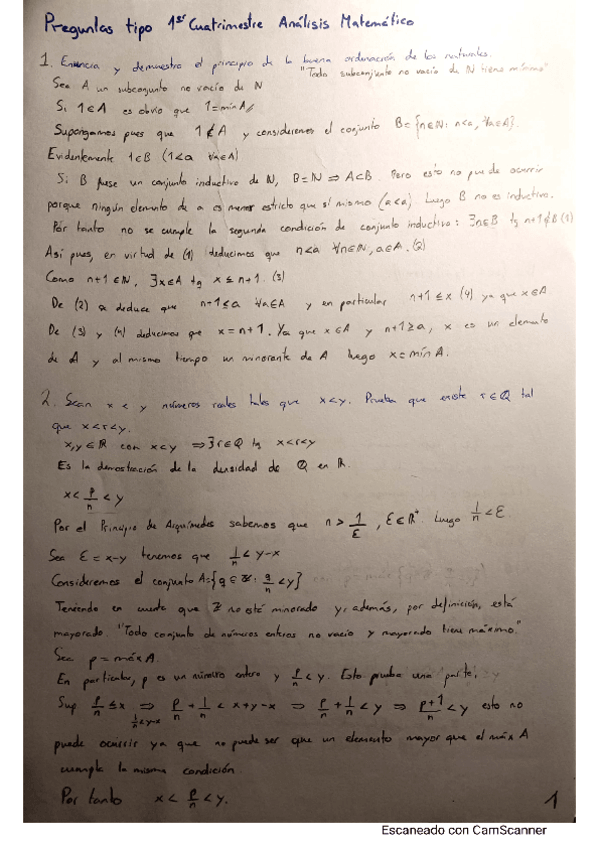 Preguntas tipo 1er Cuatrimestre Análisis Matemático
1. Enuncia y demuestra el principio de la buena ordenación de los naturales.
"Todo subconjunto no vacío de N tiene mínimo"
Sea A un subconjunto no vacío de N
Si 1∈A es obvio que 1=mínA//
Supongamos pues que 1∉A y consideremos el conjunto B={n∈N: n<a, ∀a∈A}.
Evidentemente 1∈B (1<a ∀a∈A)
Si B fuese un conjunto inductivo de N, B=N ⇒ A⊂B. Pero esto no puede ocurrir
porque ningún elemento de a es menor estricto que sí mismo (a<a) Luego B no es inductivo.
Por tanto no se cumple la segunda condición de conjunto inductivo: ∃n∈B tq n+1∉B (1)
Así pues, en virtud de (1) deducimos que n<a ∀n∈N, a∈A. (2)
Como n+1∈N, ∃x∈A tq x≤n+1. (3)
De (2) se deduce que n+1≤a ∀a∈A y en particular n+1≤x (4) ya que x∈A
De (3) y (4) deducimos que x=n+1. Ya que x∈A y n+1≥a, x es un elemento
de A y al mismo tiempo un minorante de A luego x=mínA.
2. Sean x<y números reales tales que x<y. Prueba que existe r∈Q tal
que x<r<y.
x,y∈R con x<y ⇒∃r∈Q tq x<r<y
Es la demostración de la densidad de Q en R.
x<p/n<y
Por el Principio de Arquímedes sabemos que n>1/ε, ε∈R⁺. Luego 1/n<ε
Sea ε=x-y tenemos que 1/n<y-x
Consideremos el conjunto A={q∈Z: q/n<y}
Teniendo en cuenta que Z no está minorado y, además, por definición, está
mayorado. "Todo conjunto de números enteros no vacío y mayorado tiene máximo."
Sea p=máxA.
En particular, p es un número entero y p/n<y. Esto prueba una parte.
Sup p/n≤x ⇒ p/n+1/n<x+y-x ⇒ p/n+1/n<y ⇒ p+1/n<y esto no
1/n<y-x
puede ocurrir ya que no puede ser que un elemento mayor que el máx A
cumpla la misma condición.
Por tanto x<p/n<y.
1
Escaneado con CamScanner